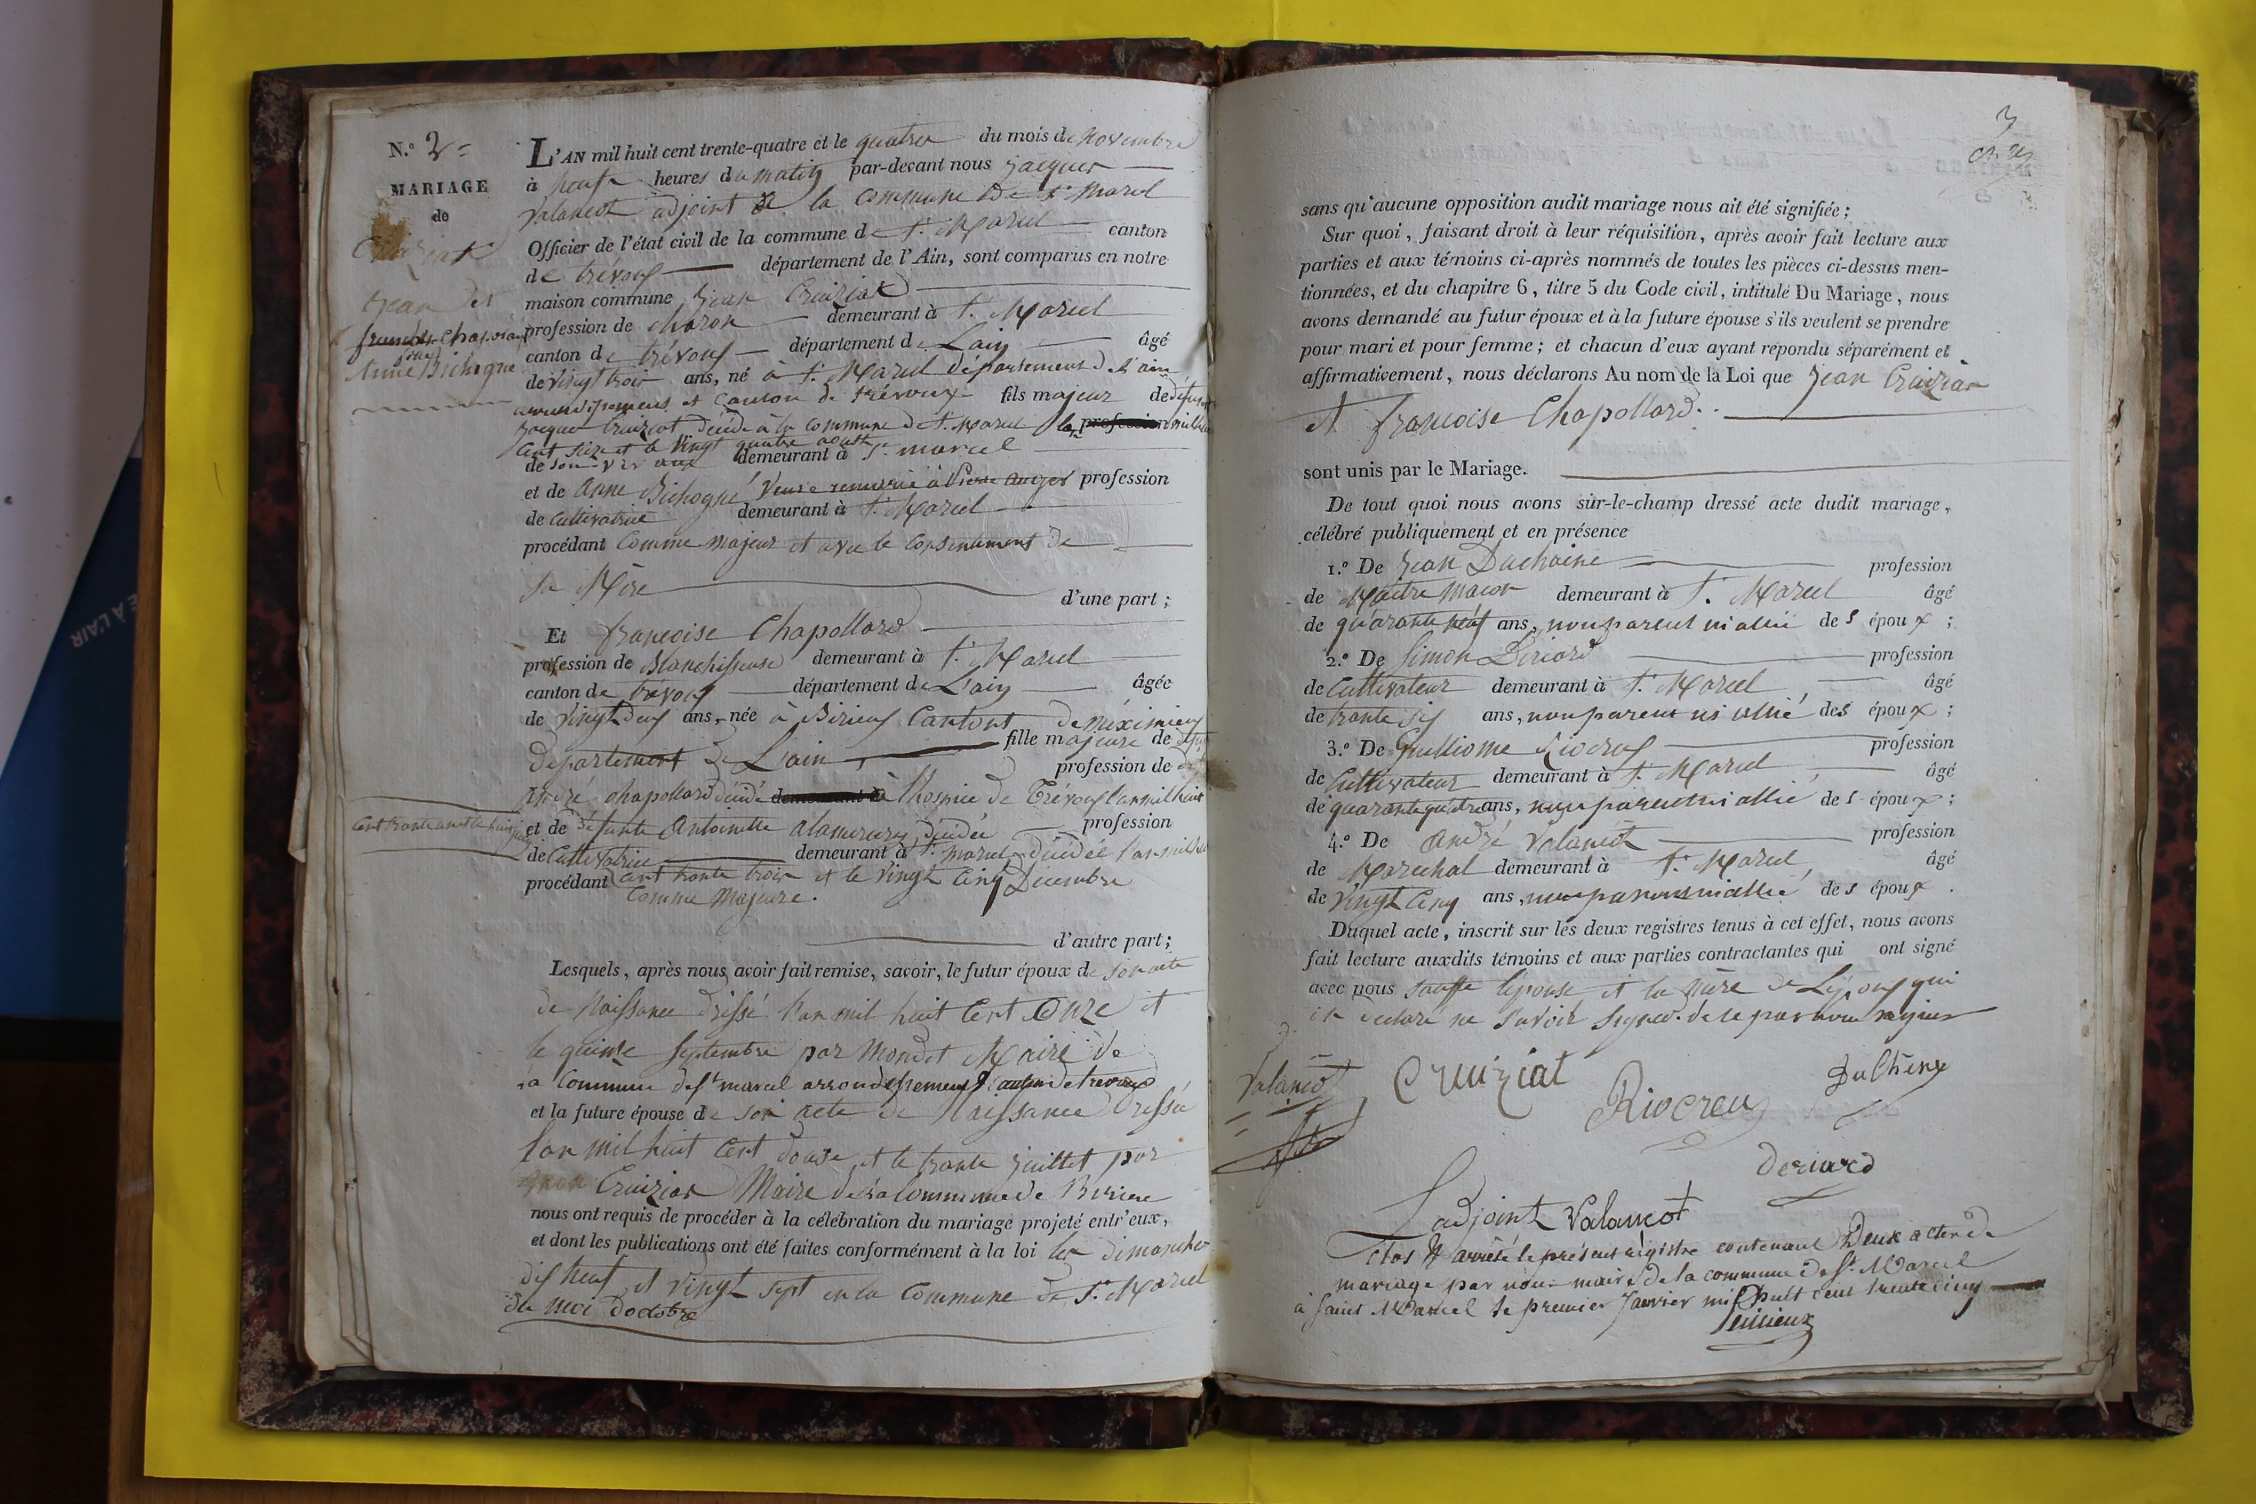 N.º 2 =
MARIAGE
de
Cruiziat
Jean et
Anne Bichogné
L'AN mil huit cent trente-quatre et le quatre du mois de Novembre
à neuf heures du matin par-devant nous Jacques
Valancot adjoint de la commune de St. Marcel
Officier de l'état civil de la commune de St. Marcel canton
de trévoux département de l'Ain, sont comparus en notre
maison commune Jean Cruiziat
profession de charon demeurant à St. Marcel
canton de trévoux département de Lain âgé
de vingt trois ans, né à St. Marcel département de l'ain
arrondissement et canton de trévoux fils majeur de défunt
Jacques Cruiziat décédé à la commune de St. Marcel
cent seize et le vingt quatre aoust
de son vivant demeurant à St. marcel
et de Anne Bichogné veuve remariée à Pierre auger profession
de Cultivatrice demeurant à St. Marcel
procédant comme majeur et avec le consentement de
sa Mère
d'une part ;
Et françoise Chapollard
profession de Blanchisseuse demeurant à St. Marcel
canton de trévoux département de Lain âgée
de vingt deux ans, née à Birieux Canton de méximieux
département de Lain, fille majeure de
profession de
André chapollard décédé à l'hospice de Trévoux l'an mil huit
et de défunte Antoinette décédée profession
de Cultivatrice demeurant à St. marcel décédée l'an mil huit
procédant cent trente trois et le vingt cinq Decembre
comme Majeure.
d'autre part ;
Lesquels, après nous avoir fait remise, savoir, le futur époux de son acte
de Naissance dressé l'an mil huit cent Onze et
le quinze Septembre par Mondet Maire de
la Commune de St. marcel arrondissement canton de trevoux
et la future épouse de son acte de Naissance dressé
l'an mil huit cent douze et le trente juillet par
Cruiziat Maire de la Commune de Birieux
nous ont requis de procéder à la célébration du mariage projeté entr'eux,
et dont les publications ont été faites conformément à la loi les dimanches
dix neuf et vingt sept en la Commune de St. Marcel
du moi d'octobre
3
sans qu'aucune opposition audit mariage nous ait été signifiée ;
Sur quoi, faisant droit à leur réquisition, après avoir fait lecture aux
parties et aux témoins ci-après nommés de toutes les pièces ci-dessus men-
tionnées, et du chapitre 6, titre 5 du Code civil, intitulé Du Mariage, nous
avons demandé au futur époux et à la future épouse s'ils veulent se prendre
pour mari et pour femme ; et chacun d'eux ayant répondu séparément et
affirmativement, nous déclarons Au nom de la Loi que Jean Cruiziat
et françoise Chapollard.
sont unis par le Mariage.
De tout quoi nous avons sur-le-champ dressé acte dudit mariage,
célébré publiquement et en présence
1.º De Jean Duchaine profession
de Maitre Macon demeurant à St. Marcel âgé
de quarante neuf ans, non parent ni allié des époux ;
2.º De Simon Deriard profession
de Cultivateur demeurant à St. Marcel, âgé
de trante six ans, non parent ni allié des époux ;
3.º De Guilliome Riocreux profession
de Cultivateur demeurant à St. Marcel âgé
de quarante quatre ans, non parent ni allié des époux ;
4.º De André Valancot profession
de Marechal demeurant à St. Marcel, âgé
de vingt cinq ans, non parent ni allié des époux.
Duquel acte, inscrit sur les deux registres tenus à cet effet, nous avons
fait lecture auxdits témoins et aux parties contractantes qui ont signé
avec nous sauffe lepouse et la mère de Lepoux qui
on declaré ne savoir signer de ce par nous requis
Valancot Cruiziat DuChêne
Riocreux
Deriard
Ladjoint Valancot
Clos et arrêté le présent régistre contenant Deux actes de
mariage par nous maire de la commune de St. Marcel
à Saint Marcel le premier Janvier mil huit cent trente cinq